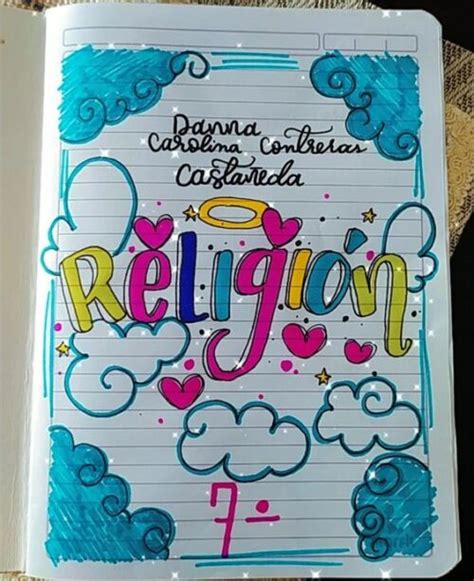 Danna
Carolina Contreras
Castañeda
Religión
7